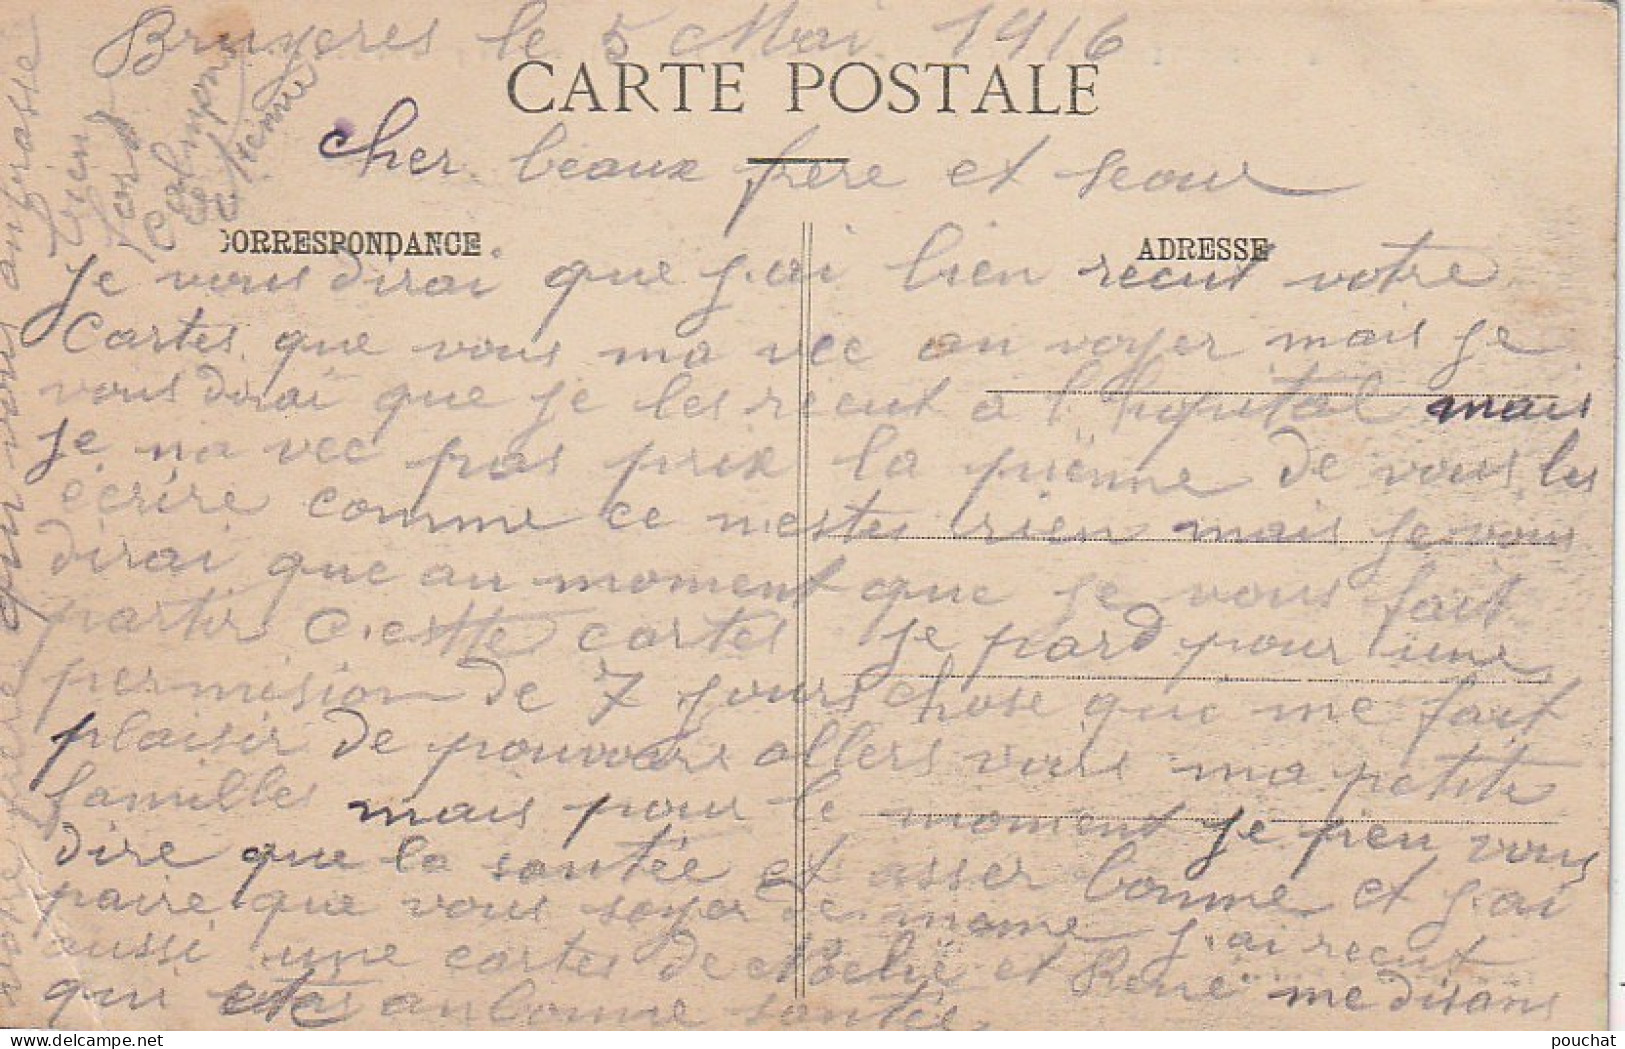 Bruyeres le 5 Mai 1916
CARTE POSTALE
cher beaux frere et seour
CORRESPONDANCE
ADRESSE
Je vous dirai que j.ai bien recut votre
Cartes que vous ma vec an voyer mais je
vous dirai que je les recut a l'hopital mais
je na vec pas prix la pienne de vous les
écrire comme ce n.estes rien mais je vous
dirai que au moment que je vous fait
partir c.ette cartes je pard pour une
permision de 7 jours chose que me fait
plaisir de pouvoire allers voire ma petite
familles mais pour le moment je pieu vous
dire que la santée et asser bonne et j.ai
paire que vous soyer de mome j.ai recut
aussi une cartes de et René me disans
qui etes an bonne santée
votre frere qui vous anbrasse
bien
fors
Etienne
pouchat